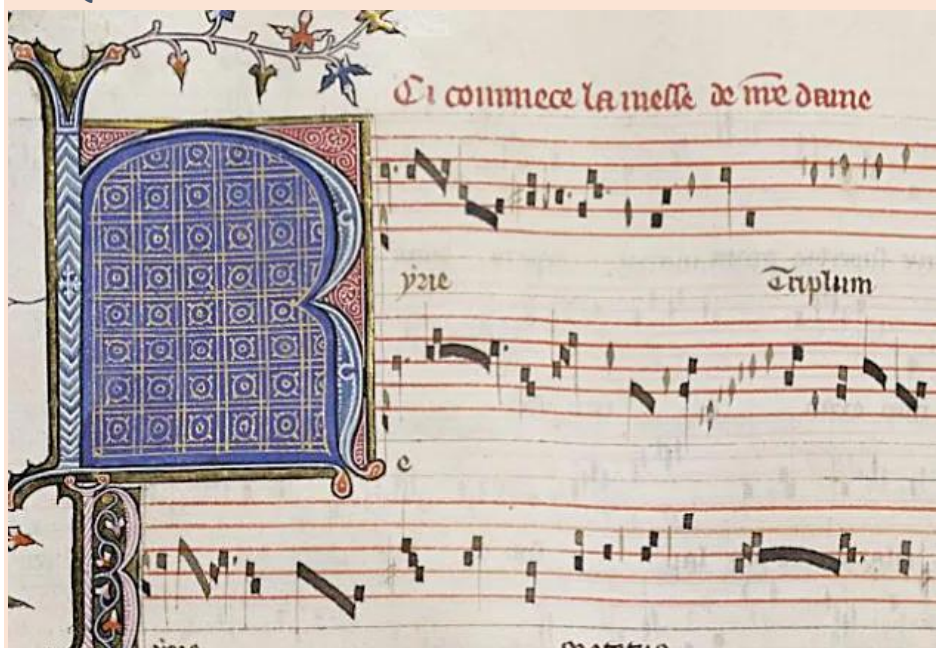 Ci commece la messe de nr̄e dame
Kyrie Triplum
e